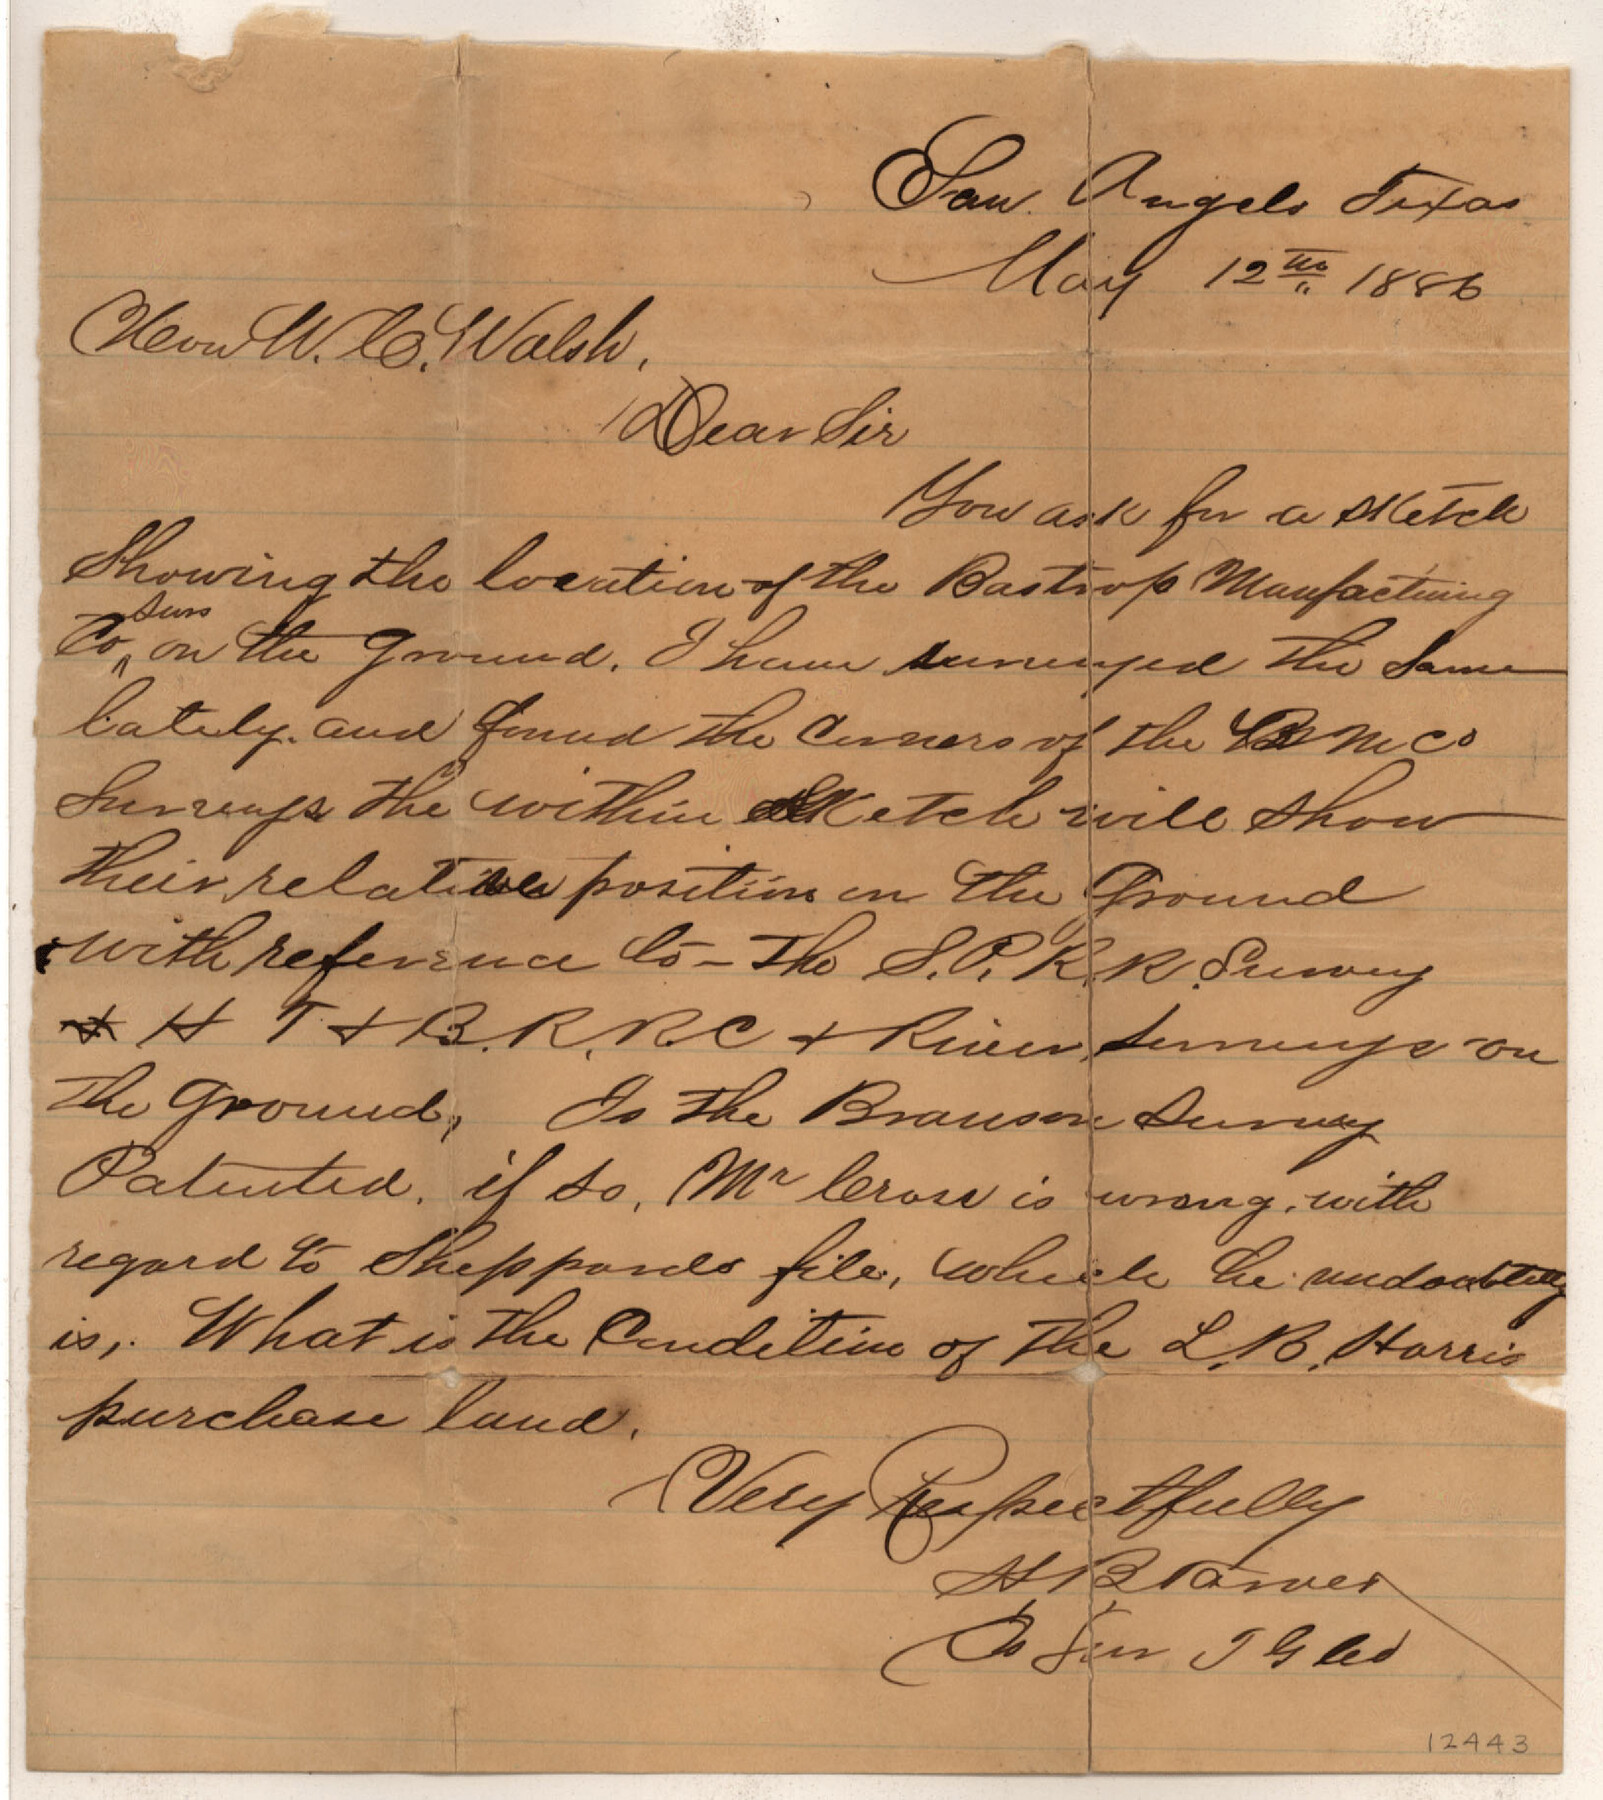 San Angelo Texas
May 12th 1886
Hon W. C. Walsh,
Dear Sir
You ask for a sketch
Showing the location of the Bastrop Manfacturing
Co surs on the Ground. I have surveyed the Same
lately. and found the Corners of the B M Co
Surveys the within sketch will show
their relative position on the Ground
with reference to - the S. P. R. R. Survey
& H T & B. R. R. C & River Surveys on
the Ground, Is the Branson Survey
Patented. if so, Mr Cross is wrong, with
regard to Sheppards file, which he undoubtedly
is,. What is the Condition of the L. B. Harris
purchase land.
Very Respectfully
H B Tarver
Co Sur T G Co
12443